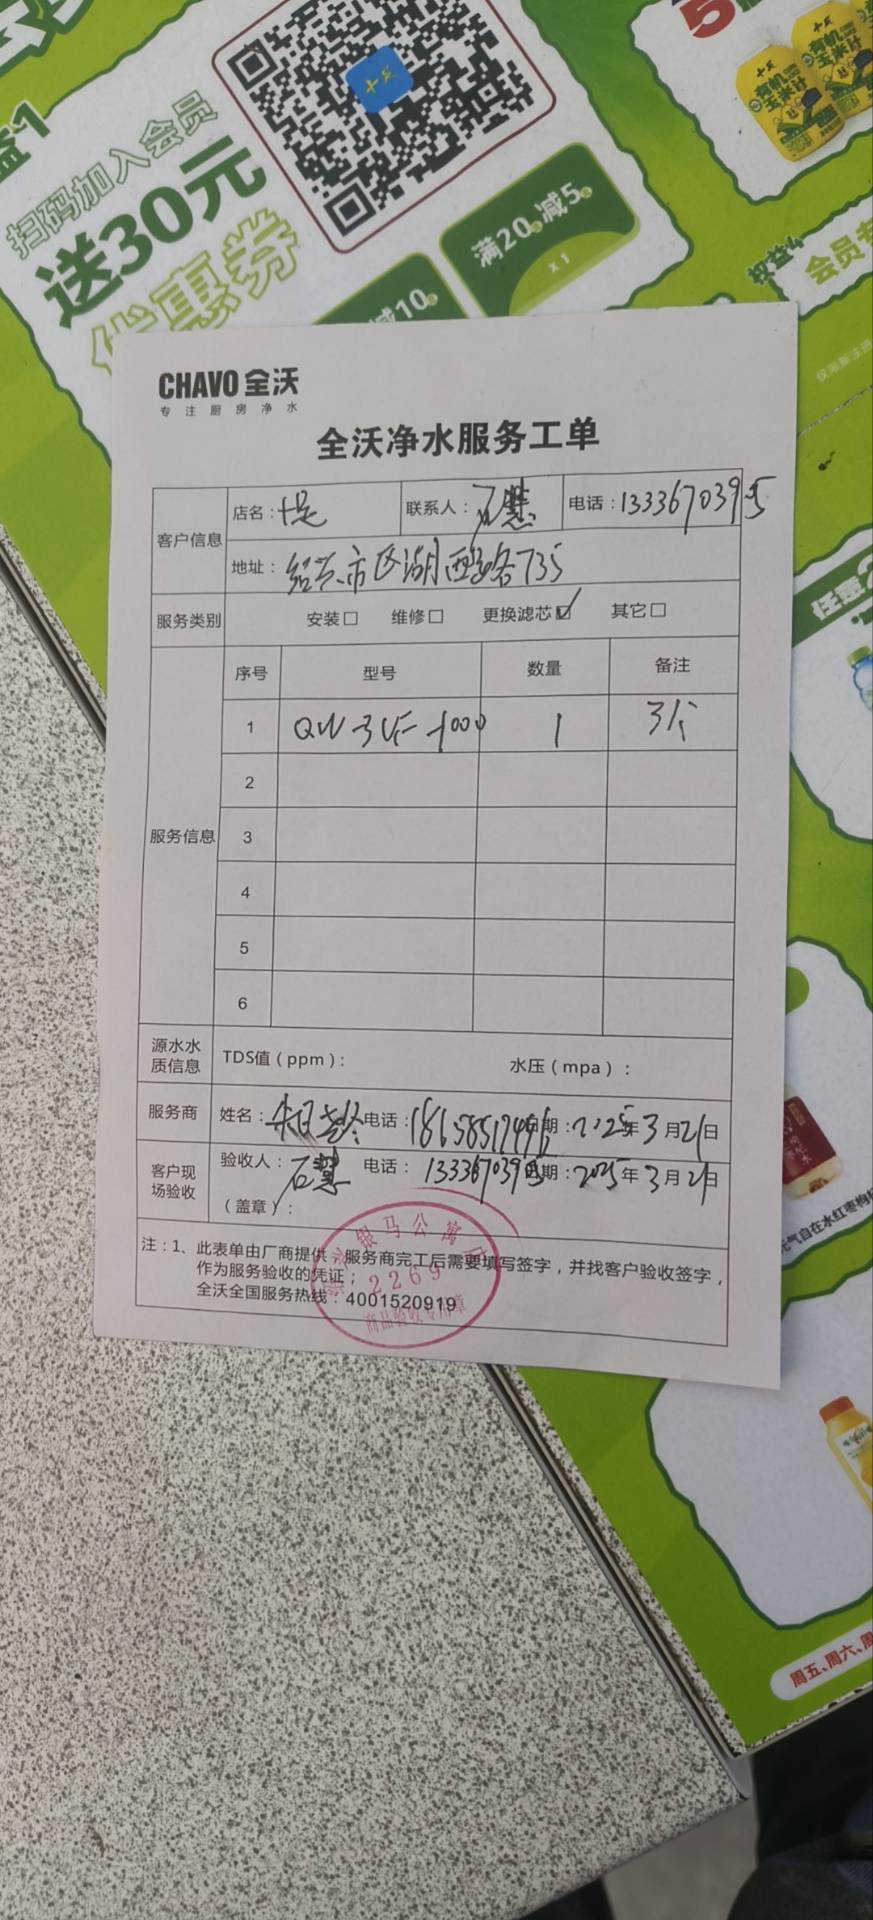 益1
扫码加入会员
送30元
优惠券
十足
满20元减5元
x1
减10元
5
十足
有机
玉米汁
有机
玉米汁
权益4
会员专
仅限新注册
CHAVO 全沃
专注厨房净水
全沃净水服务工单
客户信息
店名：十足
联系人：石慧
电话：13336703935
地址：绍兴市区湖西路735
服务类别
安装□ 维修□ 更换滤芯☑ 其它□
服务信息
序号 型号 数量 备注
1 QW-3UF-1000 1 3个
2
3
4
5
6
源水水质信息
TDS值（ppm）： 水压（mpa）：
服务商
姓名： 电话：18658517496 日期：2025年3月21日
客户现场验收
验收人：石慧 电话：13336703935 日期：2025年3月21日
（盖章）：
银马公寓
2269
商品验收专用章
注：1、此表单由厂商提供，服务商完工后需要填写签字，并找客户验收签字，
作为服务验收的凭证；
全沃全国服务热线：4001520919
元气自在水红枣枸杞
周五、周六、周